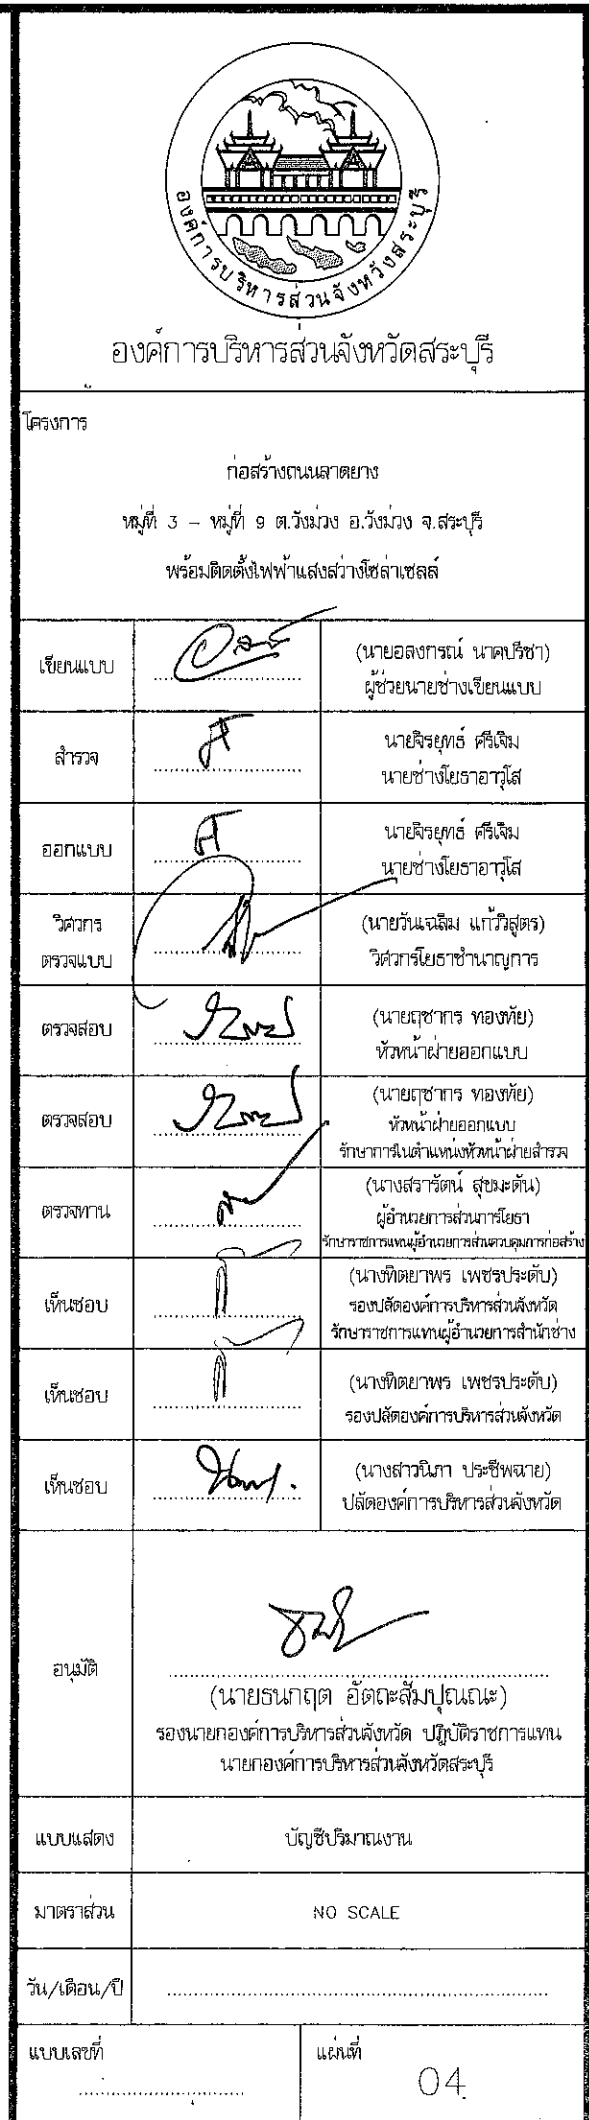 องค์การบริหารส่วนจังหวัดสระบุรี
องค์การบริหารส่วนจังหวัดสระบุรี
โครงการ
ก่อสร้างถนนลาดยาง
หมู่ที่ 3 - หมู่ที่ 9 ต.วังม่วง อ.วังม่วง จ.สระบุรี
พร้อมติดตั้งไฟฟ้าแสงสว่างโซล่าเซลล์
เขียนแบบ
(นายอลงกรณ์ นาคปรีชา)
ผู้ช่วยนายช่างเขียนแบบ
สำรวจ
นายจิรยุทธ์ ศรีเจิม
นายช่างโยธาอาวุโส
ออกแบบ
นายจิรยุทธ์ ศรีเจิม
นายช่างโยธาอาวุโส
วิศวกร
ตรวจแบบ
(นายวันเฉลิม แก้ววิสูตร)
วิศวกรโยธาชำนาญการ
ตรวจสอบ
(นายฤชากร ทองทัย)
หัวหน้าฝ่ายออกแบบ
ตรวจสอบ
(นายฤชากร ทองทัย)
หัวหน้าฝ่ายออกแบบ
รักษาการในตำแหน่งหัวหน้าฝ่ายสำรวจ
ตรวจทาน
(นางสรารัตน์ สุขมะดัน)
ผู้อำนวยการส่วนการโยธา
รักษาราชการแทนผู้อำนวยการส่วนควบคุมการก่อสร้าง
เห็นชอบ
(นางทิตยาพร เพชรประดับ)
รองปลัดองค์การบริหารส่วนจังหวัด
รักษาราชการแทนผู้อำนวยการสำนักช่าง
เห็นชอบ
(นางทิตยาพร เพชรประดับ)
รองปลัดองค์การบริหารส่วนจังหวัด
เห็นชอบ
(นางสาวนิภา ประชีพฉาย)
ปลัดองค์การบริหารส่วนจังหวัด
อนุมัติ
(นายธนกฤต อัตถะสัมปุณณะ)
รองนายกองค์การบริหารส่วนจังหวัด ปฏิบัติราชการแทน
นายกองค์การบริหารส่วนจังหวัดสระบุรี
แบบแสดง
บัญชีปริมาณงาน
มาตราส่วน
NO SCALE
วัน/เดือน/ปี
แบบเลขที่
แผ่นที่
04